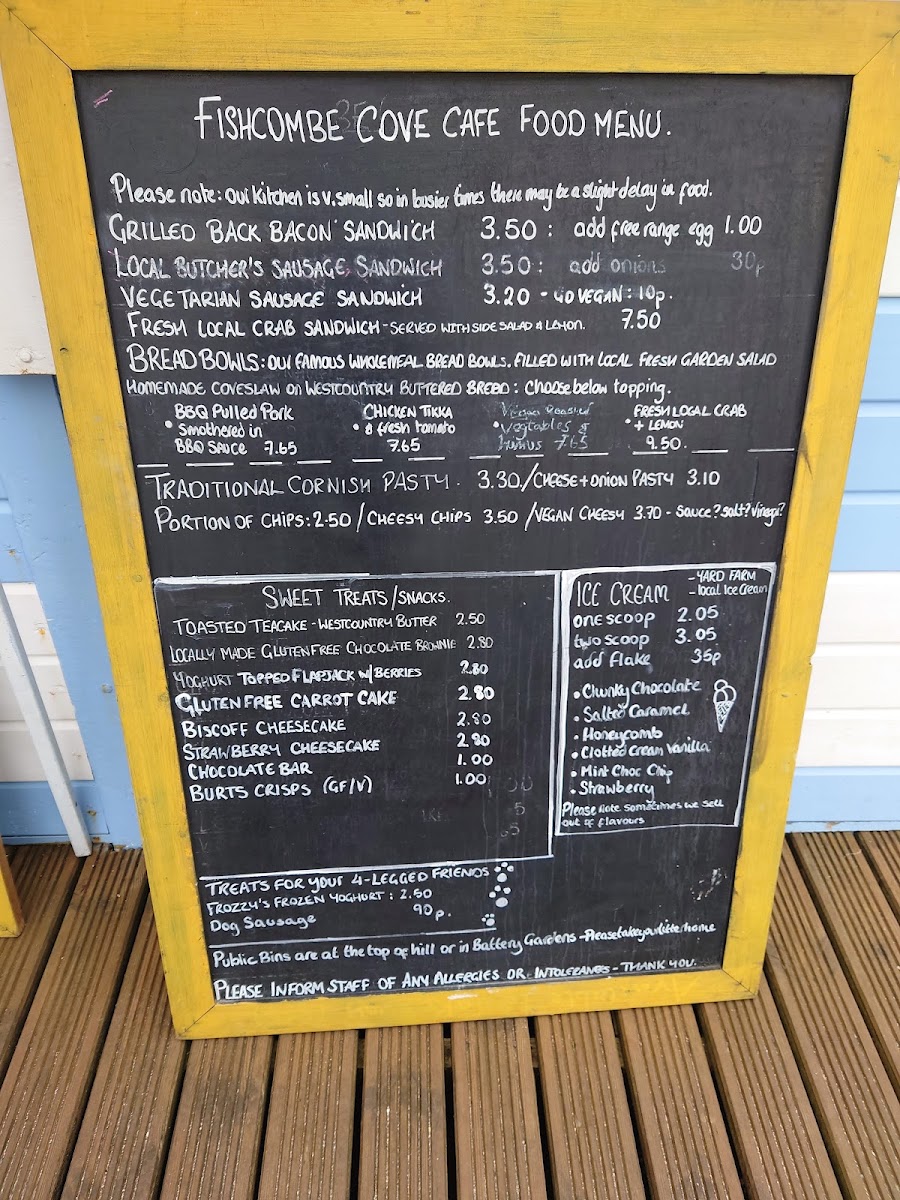 FISHCOMBE COVE CAFE FOOD MENU.
Please note: our kitchen is v. small so in busier times there may be a slight delay in food.
GRILLED BACK BACON SANDWICH 3.50 : add free range egg 1.00
LOCAL BUTCHER'S SAUSAGE SANDWICH 3.50 : add onions 30p
VEGETARIAN SAUSAGE SANDWICH 3.20 - GO VEGAN : 10p.
FRESH LOCAL CRAB SANDWICH - SERVED WITH SIDE SALAD & LEMON. 7.50
BREAD BOWLS : OUR FAMOUS WHOLEMEAL BREAD BOWLS. FILLED WITH LOCAL FRESH GARDEN SALAD
HOMEMADE COVESLAW on WESTCOUNTRY BUTTERED BREAD : Choose below topping.
BBQ Pulled Pork CHICKEN TIKKA Vegan Roasted FRESH LOCAL CRAB
• Smothered in • & fresh tomato • Vegtables & • + LEMON
BBQ SAUCE 7.65 7.65 humus 7.65 9.50.
TRADITIONAL CORNISH PASTY. 3.30. / CHEESE + ONION PASTY 3.10
PORTION OF CHIPS : 2.50 / CHEESY CHIPS 3.50 / VEGAN CHEESY 3.70 - Sauce? salt? Vinegar?
SWEET TREATS / SNACKS.
TOASTED TEACAKE - WESTCOUNTRY BUTTER 2.50
LOCALLY MADE GLUTEN FREE CHOCOLATE BROWNIE 2.80
YOGHURT TOPPED FLAPJACK W/ BERRIES 2.80
GLUTEN FREE CARROT CAKE 2.80
BISCOFF CHEESECAKE 2.80
STRAWBERRY CHEESECAKE 2.80
CHOCOLATE BAR 1.00
BURTS CRISPS (GF/V) 1.00
ICE CREAM - YARD FARM
- local Ice Cream
one scoop 2.05
two scoop 3.05
add flake 35p
• Chunky Chocolate
• Salted Caramel
• Honeycomb
• Clotted Cream Vanilla
• Mint Choc Chip
• Strawberry
Please Note sometimes we sell
out of flavours
TREATS FOR YOUR 4-LEGGED FRIENDS
FROZZY'S FROZEN YOGHURT : 2.50
Dog Sausage 90p.
Public Bins are at the top of hill or in Battery Gardens - Please take your litter home
PLEASE INFORM STAFF OF ANY ALLERGIES OR INTOLERANCES - THANK YOU.